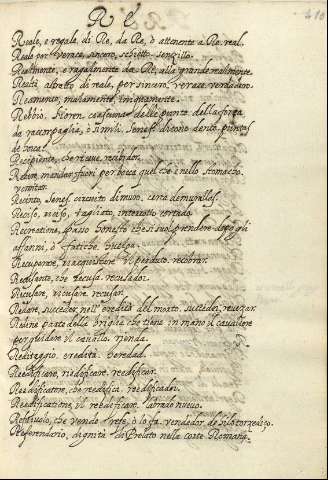 R E
410
Reale, e regale di Re, da Re, ò attenente a Re. real.
Reale per verace, sincero, schietto. senzillo.
Realmente, e regalmente da Re, alla grande realmente.
Realtà astratto di reale, per sincero, verace verdadero.
Reamente, malamente, iniquamente.
Rebbio, fioren. ciascuna delle punte della forca
da paccompaglia, e simili. Senes. dicono dente. puntas
de horca.
Recipiente, che riceue. recibidor.
Recere, mandar fuori per bocca quel che è nello stomacho.
vomitar.
Recinto, Senes. circuito di muro, cerca de murallas.
Reciso, riciso, tagliato, interrotto cortado.
Recreatione, spasso honesto che si suol prendere dopo gli
affanni, ò fatiche. huelga.
Recuperare, riacquistare il perduto. recobrar.
Recusante, che recusa. recusador.
Recusare, ricusare. recusar.
Redare, succeder nell' eredità del morto. succeder,
Redine parte della briglia che tiene in mano il caualiere
per guidare il cauallo. rienda.
Reditaggio, eredità. heredad.
Reedificare, riedificare. reedificar.
Reedificatore, che reedifica reedificador.
Reedificatione, il reedificare labrar de nueuo.
Refaiuolo, che vende refe, ò lo fa. vendedor de hilo torzedizo.
Referendario, dignità di Prelato nella corte Romana.